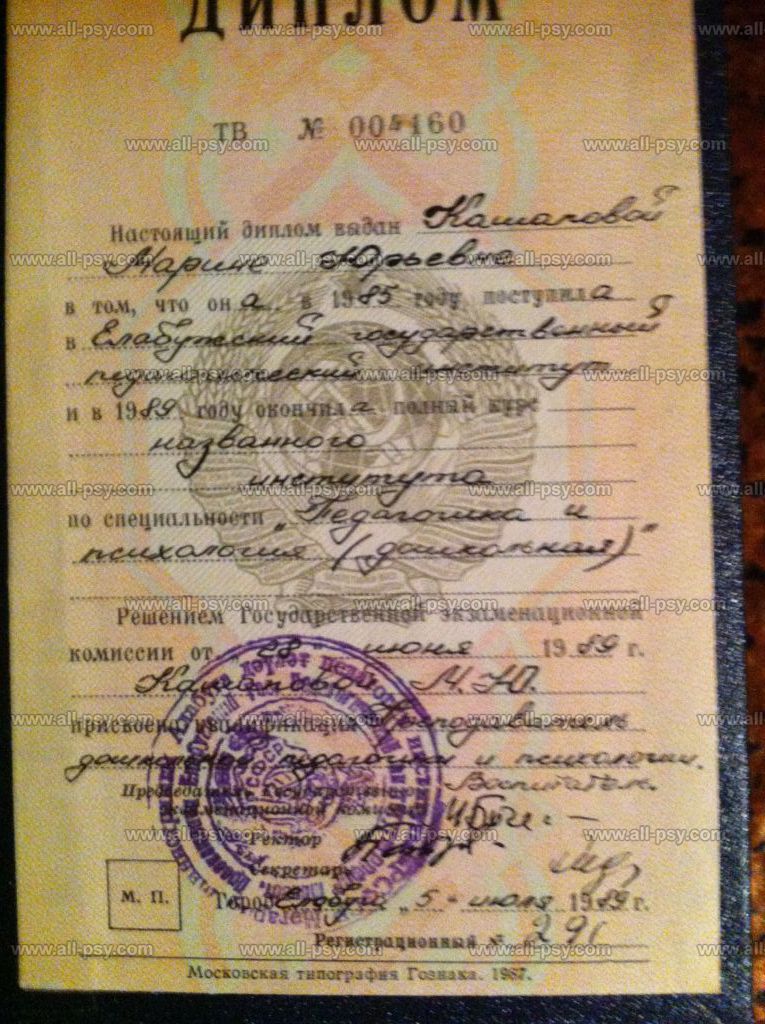 ДИПЛОМ
ТВ № 004160
Настоящий диплом выдан Кашаповой
Марине Юрьевне
в том, что она в 1985 году поступила
в Елабужский государственный
педагогический институт
и в 1989 году окончила полный курс
названного
института
по специальности „Педагогика и
психология (дошкольная)"
Решением Государственной экзаменационной
комиссии от „28" июня 1989 г.
Кашаповой М.Ю.
присвоена квалификация Преподаватель
дошкольной педагогики и психологии.
Воспитатель.
Председатель Государственной
экзаменационной комиссии
Ректор
Секретарь
М. П.
Город Елабуга „5" июля 1989 г.
Регистрационный №
Московская типография Гознака. 1987.
www.all-psy.com